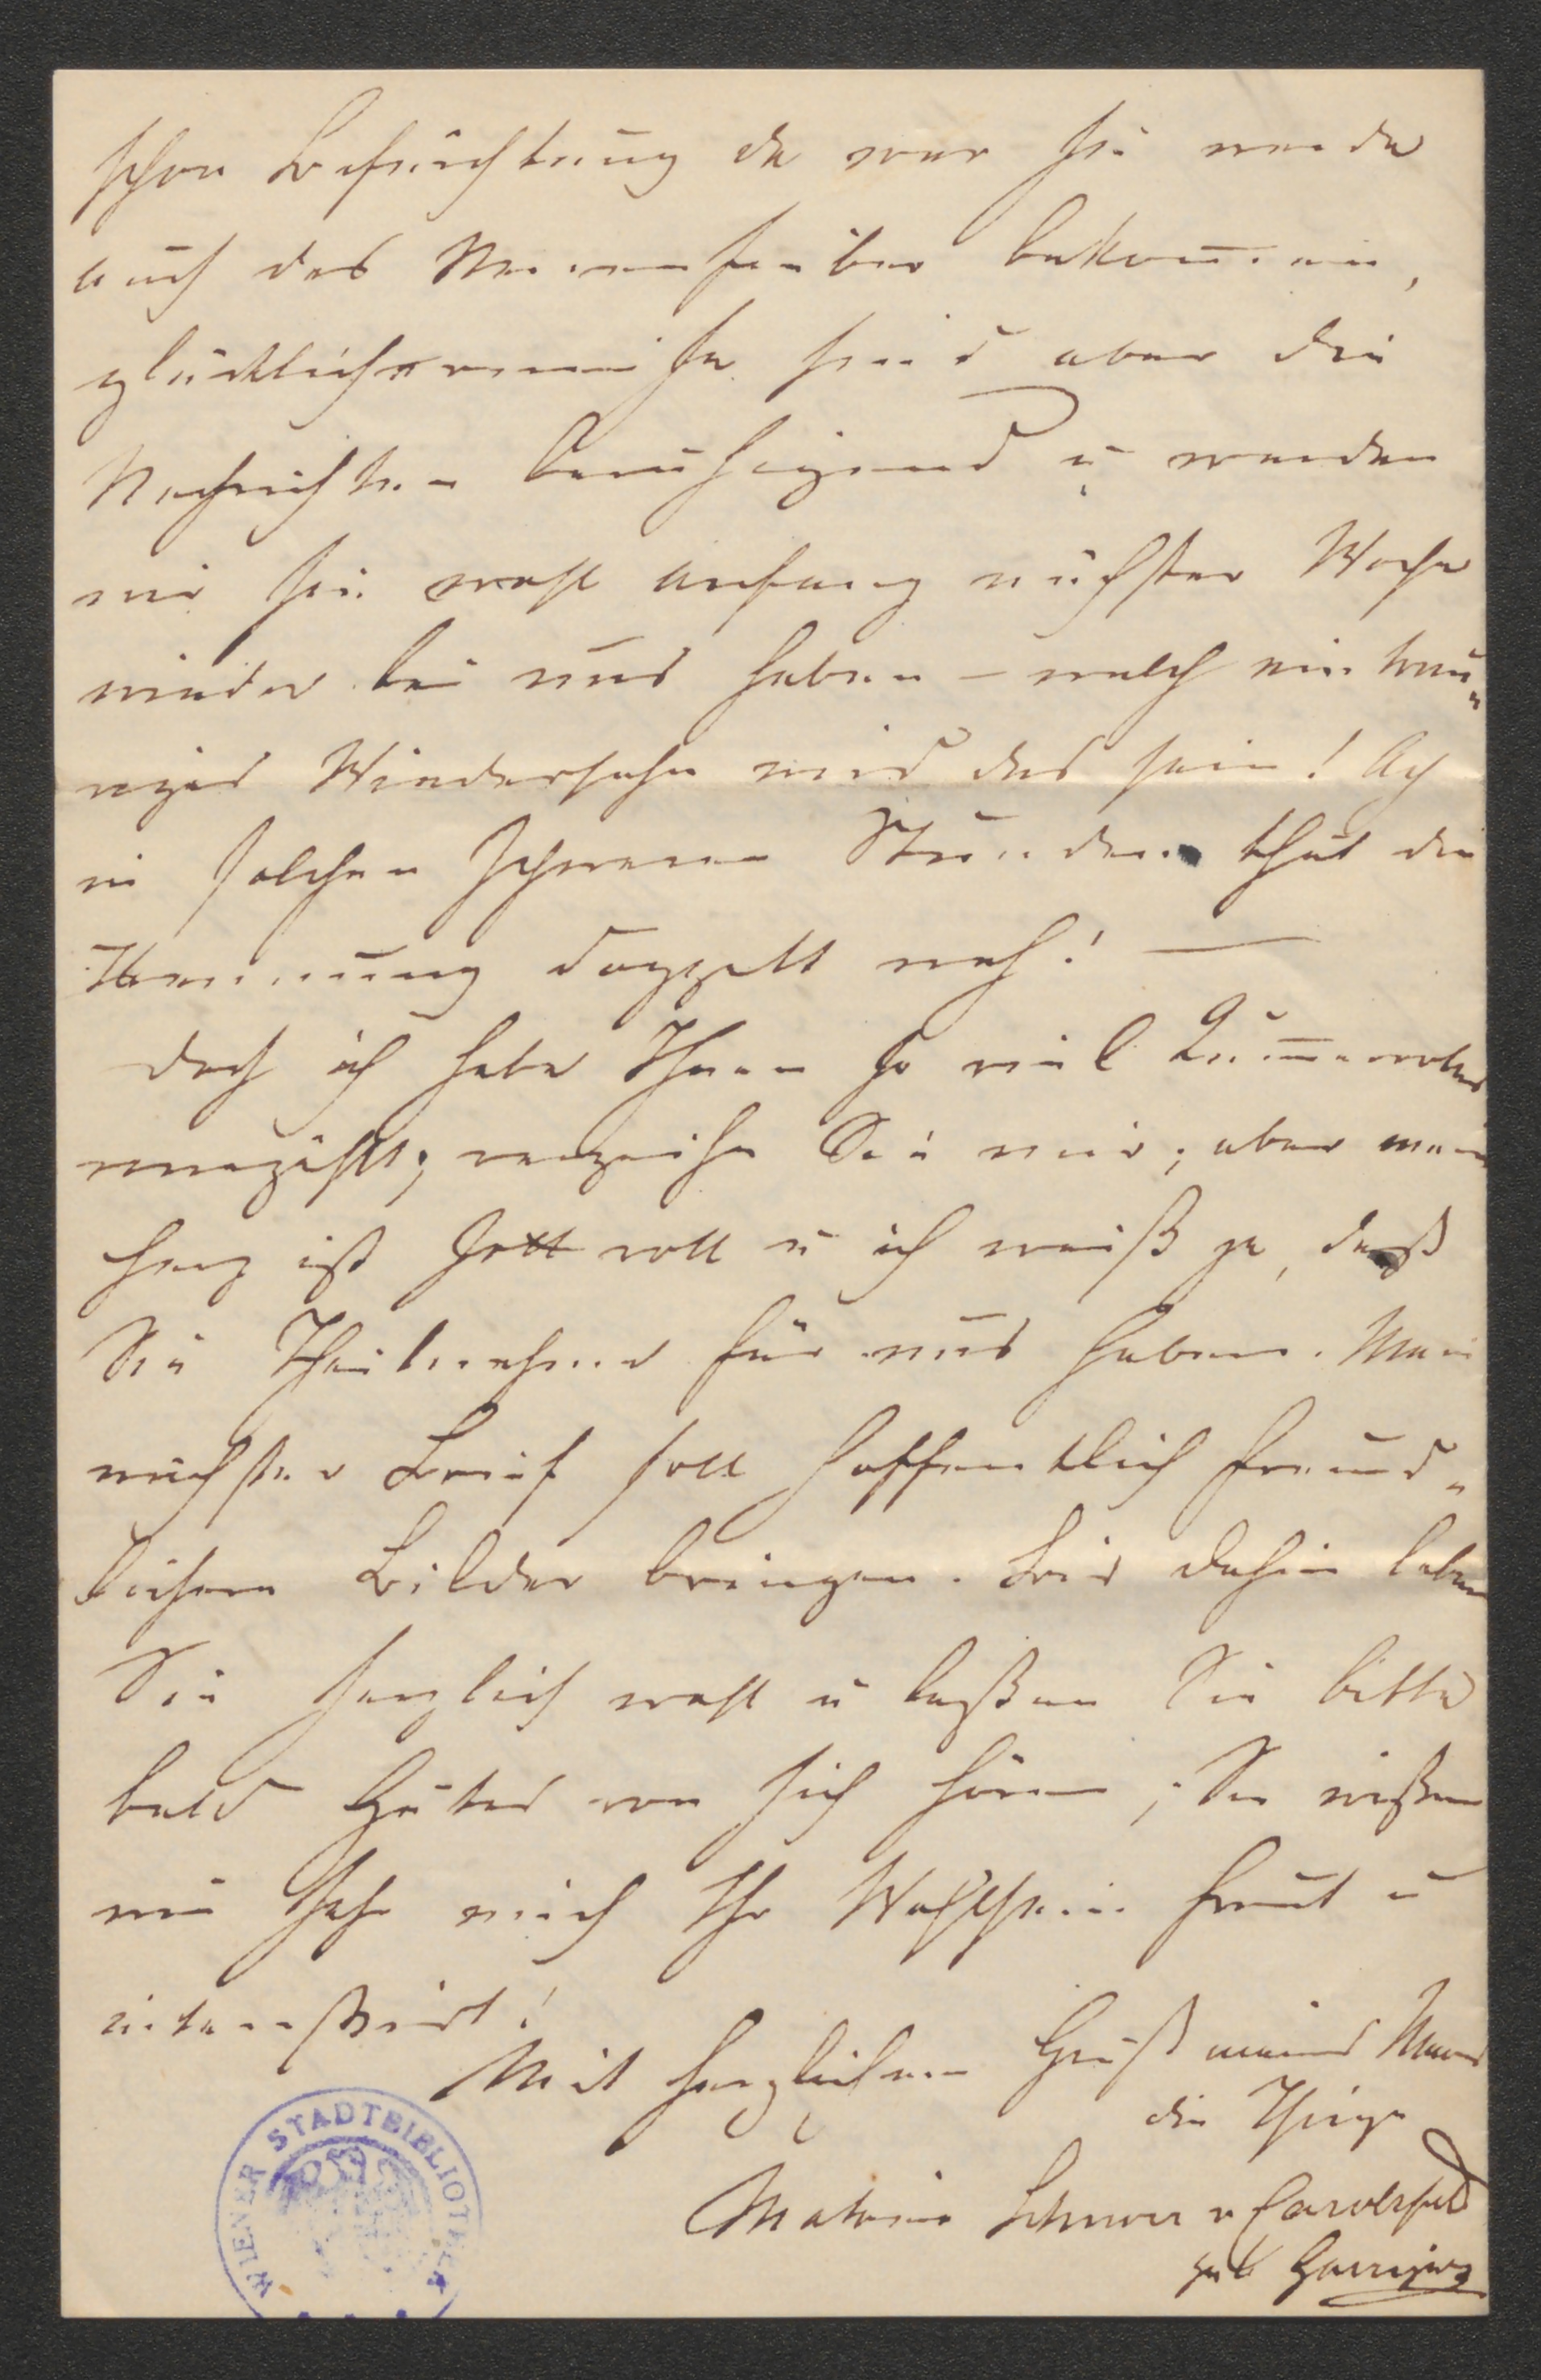 schon Befürchtung da war sie werde
auch das Nervenfieber bekommen,
glücklicherweise sind aber die
Nachrichten beruhigend u werden
wir sie wohl Anfang nächster Woche
wieder bei uns haben – welch ein trau„
riges Wiedersehn wird das sein! Ach
in solchen schweren Stunden thut die
Trennung doppelt weh! —
Doch ich habe Ihnen so viel Kummervolles
erzählt; verzeihn Sie mir; aber mein
Herz ist voll u ich weiß ja, daß
Sie Theilnahme für uns haben. Mein
nächster Brief soll hoffentlich freund„
lichere Bilder bringen. Bis dahin leben
Sie herzlich wohl u laßen Sie bitte
bald Gutes von sich hören; Sie wißen
wie sehr mich Ihr Wohlsein freut u
intereßirt!
Mit herzlichem Gruß meines Mannes
die Ihrige
Malwine Schnorr v Carolsfeld
geb Garrigues
WIENER STADTBIBLIOTHEK